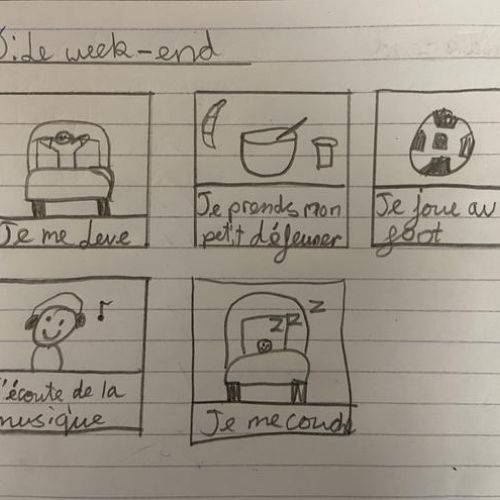 Le week-end
Je me leve
Je prends mon
petit déjeuner
Je joue au
foot
z z z
'écoute de la
musique
Je me